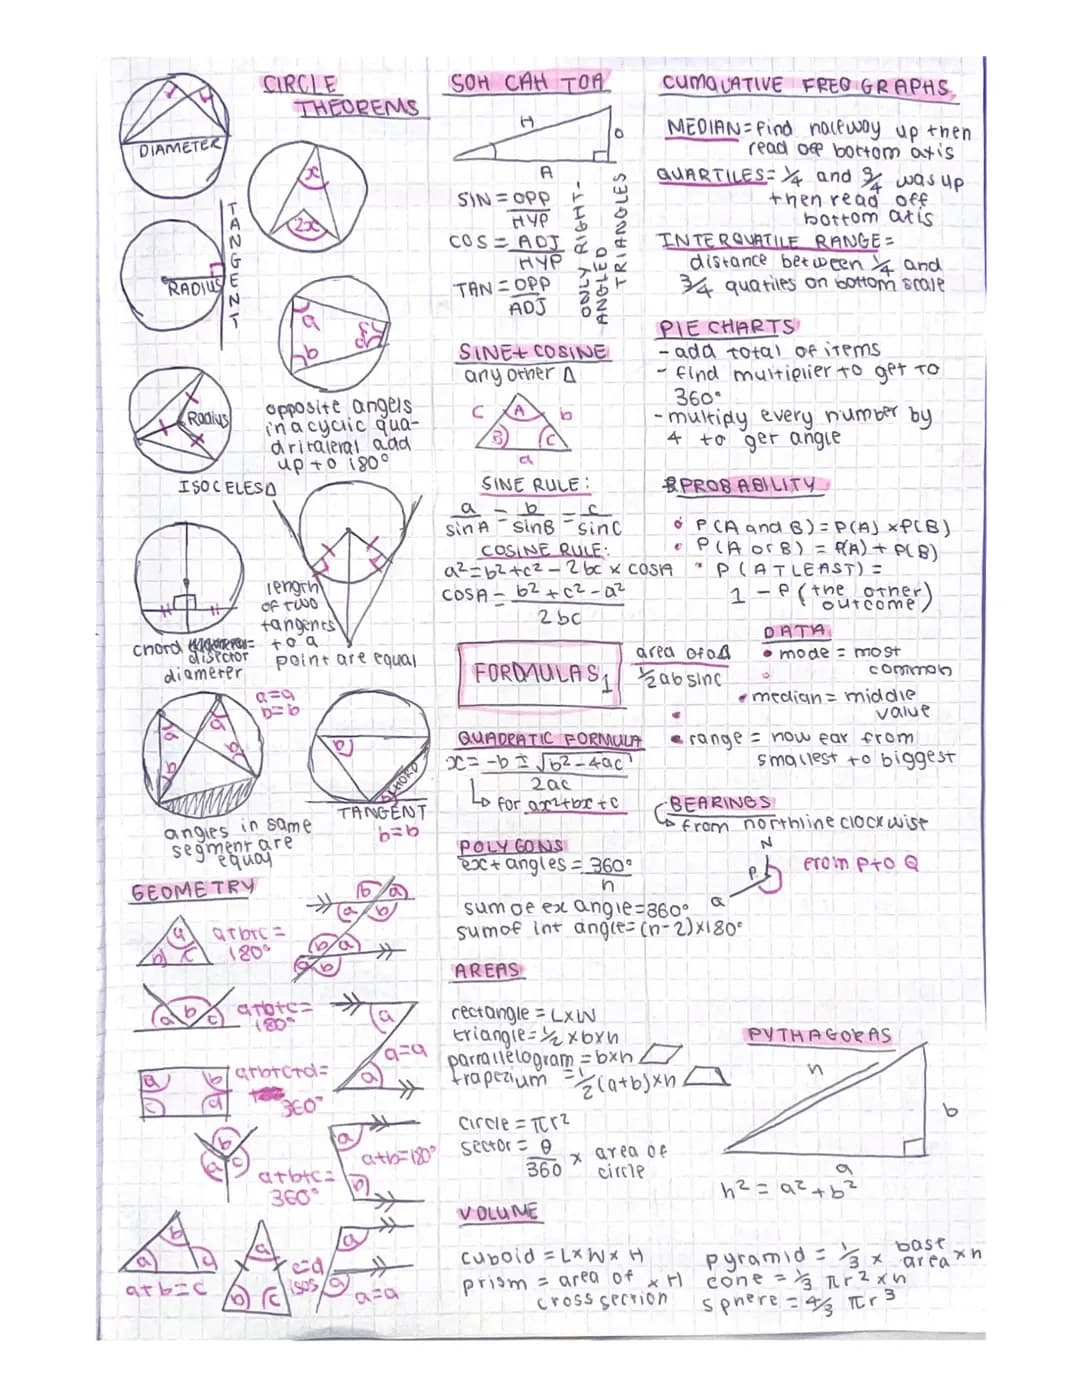 CIRCLE
THEOREMS
DIAMETER
x
2x
TANGENT
RADIUS
a
b
Radius
opposite angels
in a cyclic qua-
drirateral add
up to 180°
ISOCELES Δ
length
of two
tangents
to a
point are equal
chord
bisector =
diameter
a=a
b=b
a
a
b
b
angles in same
segment are
equal
b
CHORD
b
TANGENT
b=b
GEOMETRY
a
b
c
a+b+c=
180°
b a
a b
b a
a b
a b c
a+b+c=
180°
a
a
a=a
a b
c d
a+b+c+d=
360°
b
a c
a+b+c=
360°
a
b
a+b=180°
b
a c
a+b=c
a
b c
c=d
isos
a
a
a=a
SOH CAH TOA
H
O
A
SIN = OPP
HYP
COS = ADJ
HYP
TAN = OPP
ADJ
ONLY RIGHT-
ANGLED
TRIANGLES
SINE + COSINE
any other Δ
c A b
B C
a
SINE RULE:
a = b = c
sinA sinB sinC
COSINE RULE:
a²=b²+c²-2bc x cosA
cosA = b²+c²-a²
2bc
FORMULAS 1
area of a Δ
½absinc
QUADRATIC FORMULA
x = -b ± √b²-4ac
2ac
↳ for ax²+bx+c
POLYGONS
ext angles = 360°
n
sum of ex angle=360°
sum of int angle=(n-2)x180°
AREAS
rectangle = LxW
triangle=½xbxh
parrallelogram = bxh
trapezium = ½(a+b)xh
circle = πr²
sector = θ
360 x area of
circle
VOLUME
cuboid = LxWxH
prism = area of xH
cross section
pyramid = ⅓ x base
area xh
cone = ⅓ πr² x h
sphere = 4/3 πr³
CUMULATIVE FREQ GRAPHS
MEDIAN = find halfway up then
read off bottom axis
QUARTILES= ¼ and ¾ was up
then read off
bottom axis
INTERQUATILE RANGE=
distance between ¼ and
¾ quatiles on bottom scale
PIE CHARTS
- add total of items
- find multiplier to get to
360°
- multiply every number by
4 to get angle
PROBABILITY
• P(A and B)=P(A) xP(B)
• P(A or B) = P(A)+P(B)
• P(ATLEAST) =
1 - P(the other
outcome)
DATA
• mode = most
common
• median = middle
value
• range = how ear from
smallest to biggest
BEARINGS
↳ from northline clockwist
N
P
Q
from P to Q
PYTHAGORAS
h
b
a
h² = a²+b²